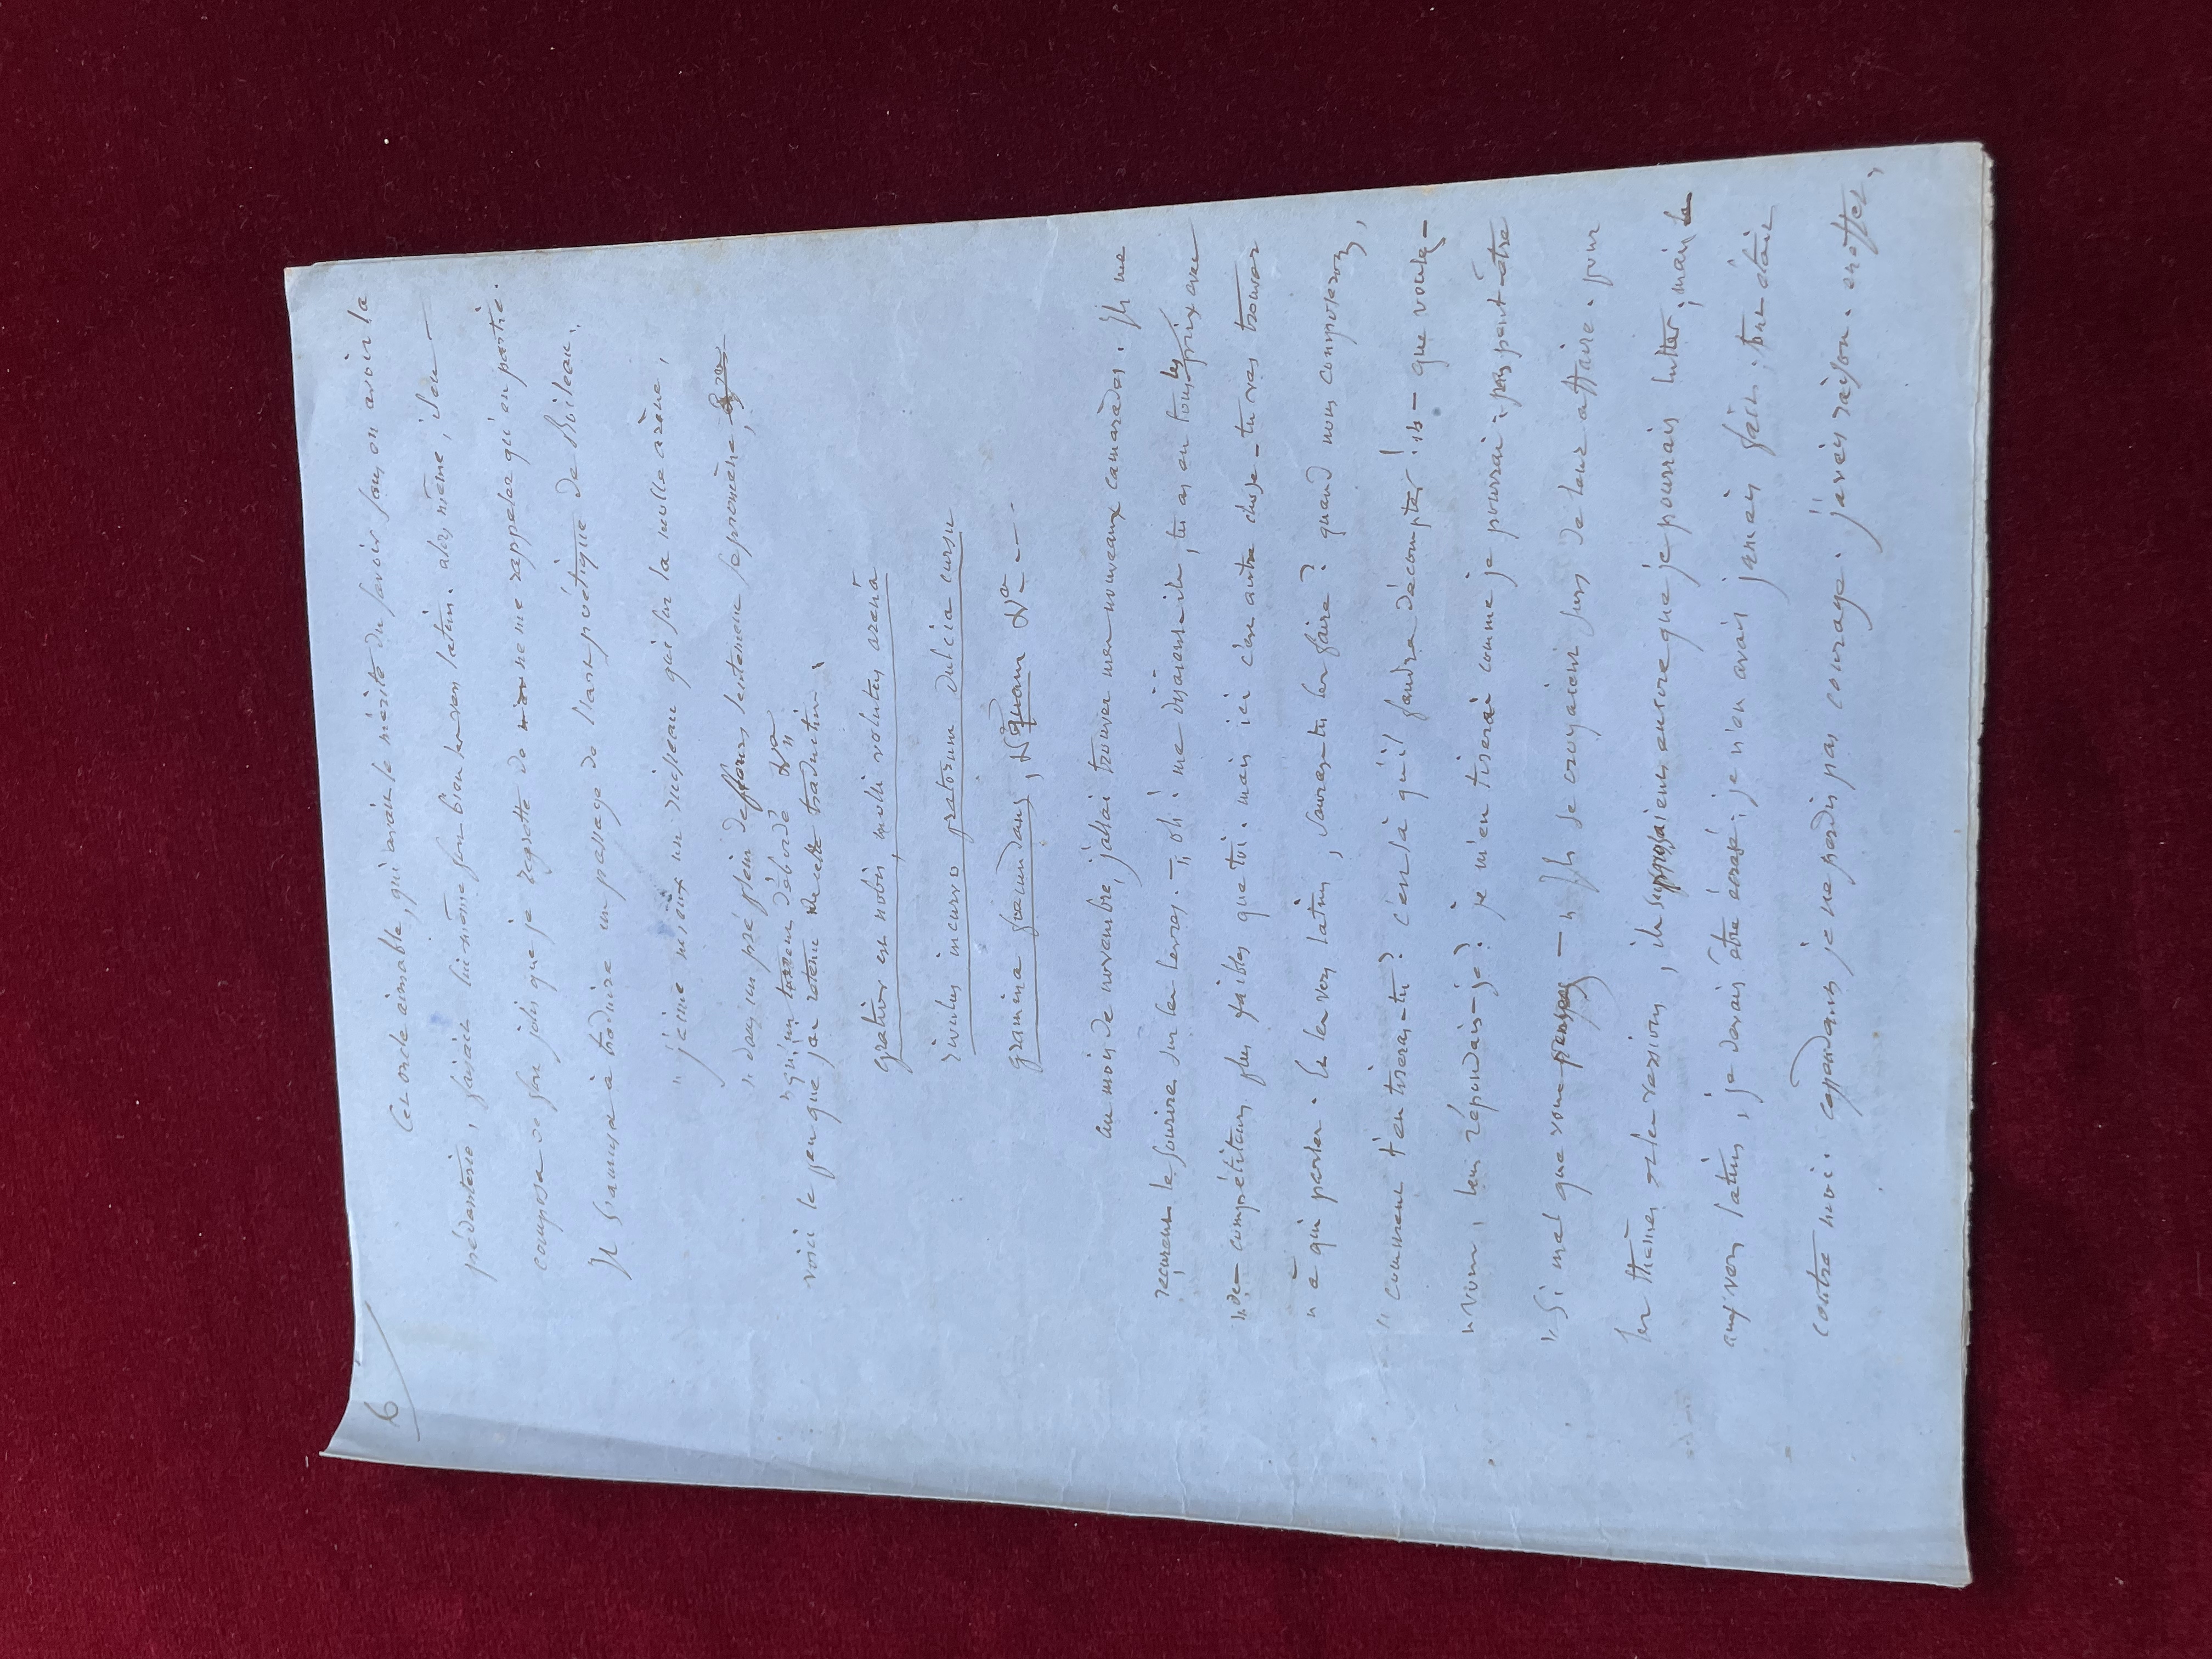 6
Cet oncle aimable, qui avait le mérite du savoir sans en avoir la
pédanterie, faisait lui-même fort bien les vers latins. alors même, il en
composa de fort jolis que je regrette de ne me rappeler qu'en partie.
Il s'amusa à traduire un passage de l'art poétique de Boileau.
" j'aime mieux un ruisseau qui sur la molle arène,
" dans un pré plein de fleurs lentement se promène,
" qu'un torrent débordé &a "
voici le peu que j'ai retenu de cette traduction:
gratior est nobis, molli volutus arenâ
rivulus incurvo pratorum dulcia cursu
gramina foecundans, &a quam &a ---
au mois de novembre, j'allai trouver mes nouveaux camarades. Ils me
reçurent le sourire sur les lèvres. — " oh! me disaient-ils, tu as eu tous les prix avec
" des compétiteurs plus faibles que toi. mais ici c'est autre chose - tu vas trouver
" à qui parler. Et les vers latins, sauras-tu les faire? quand nous composerons,
" comment t'en tireras-tu? c'est là qu'il faudra décompter! " — que voulez-
" vous, leur répondais-je? je m'en tirerai comme je pourrai: pas peut-être
" Si mal que vous pensez — " Ils se croyaient sûrs de leur affaire. pour
les thèmes et les versions, ils supposaient encore que je pourrais lutter; mais
aux vers latins, je devais être écrasé; je n'en avais jamais faits; tout était
contre moi. cependant je ne perdis pas courage. j'avais raison. en effet,